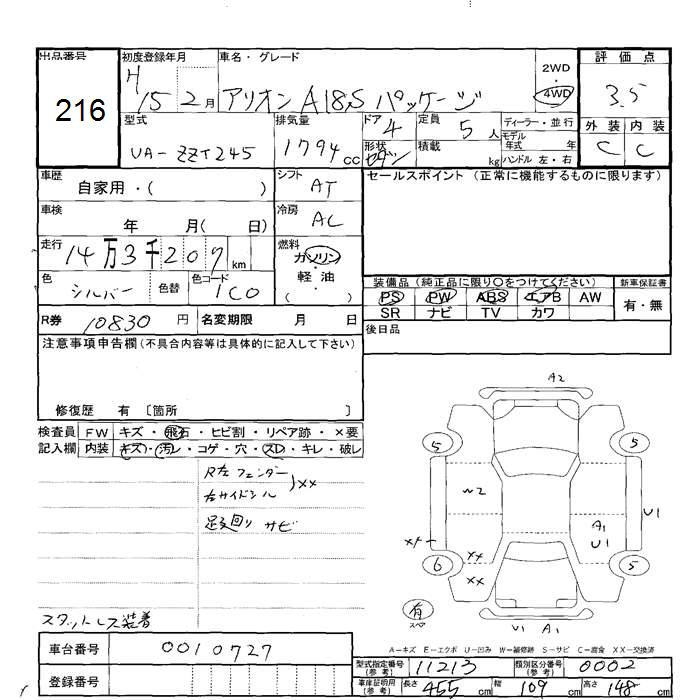 出品番号 初度登録年月 車名・グレード 2WD 評価点
216 H 15 2月 アリオン A18S パッケージ 4WD 3.5
型式 排気量 ドア 4 定員 5 人 ディーラー・並行 外装 内装
UA-ZZT245 1794 cc 形状 セダン 積載 kg モデル年式 年 C C
ハンドル 左・右
車歴 自家用・( ) シフト AT セールスポイント (正常に機能するものに限ります)
車検 年 月( 日) 冷房 AC
走行 14万3千207km 燃料 ガソリン
軽・油
( )
色 シルバー 色替 色コード 1C0
装備品 (純正品に限り○をつけてください) 新車保証書
PS PW ABS エアB AW 有・無
SR ナビ TV カワ
R券 10830 円 名変期限 月 日 後日品
注意事項申告欄(不具合内容等は具体的に記入して下さい)
修復歴 有 〔箇所 〕
検査員 FW キズ・飛石・ヒビ割・リペア跡・×要
記入欄 内装 キズ・汚レ・コゲ・穴・スレ・キレ・破レ
R左フェンダー
右サイドシル )××
足廻り サビ
スタットレス装着
A2
5 5
~2 A1 U1
U1
××
6 5
××
有 スペア
U1 A1
A-キズ E-エクボ U-凹み W-補修跡 S-サビ C-腐食 XX-交換済
車台番号 0010727
登録番号
型式指定番号(参考) 11213 類別区分番号(参考) 0002
車庫証明用(参考) 長さ 455 cm 幅 169 cm 高さ 148 cm